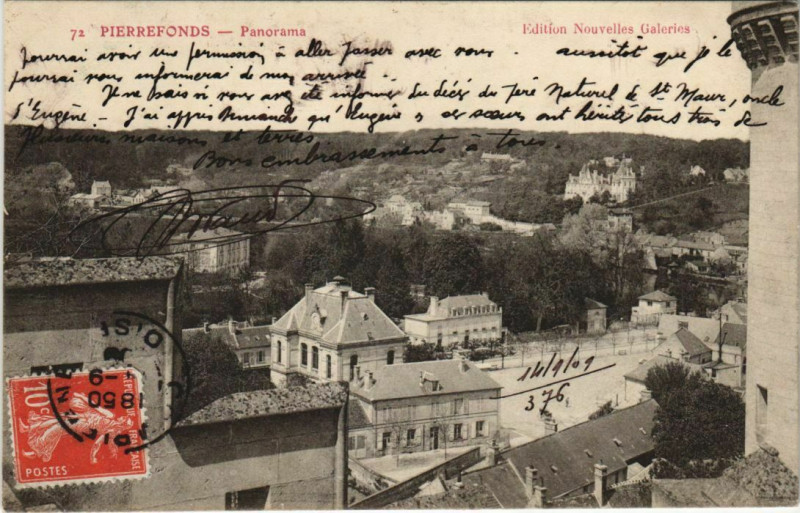 72 PIERREFONDS — Panorama
Edition Nouvelles Galeries
pourrai avoir une permission à aller passer avec vous. aussitôt que je le
pourrai vous informerai de mon arrivée.
Je ne sais si vous avez été informé du décès du père Naturel à St Maur, oncle
d'Eugène – J'ai appris dimanche qu'Eugène & ses sœurs ont hérité tous trois de
plusieurs maisons et terres
Bons embrassements à tous.
14/9/09
376
RÉPUBLIQUE FRANÇAISE
10c
POSTES
1850